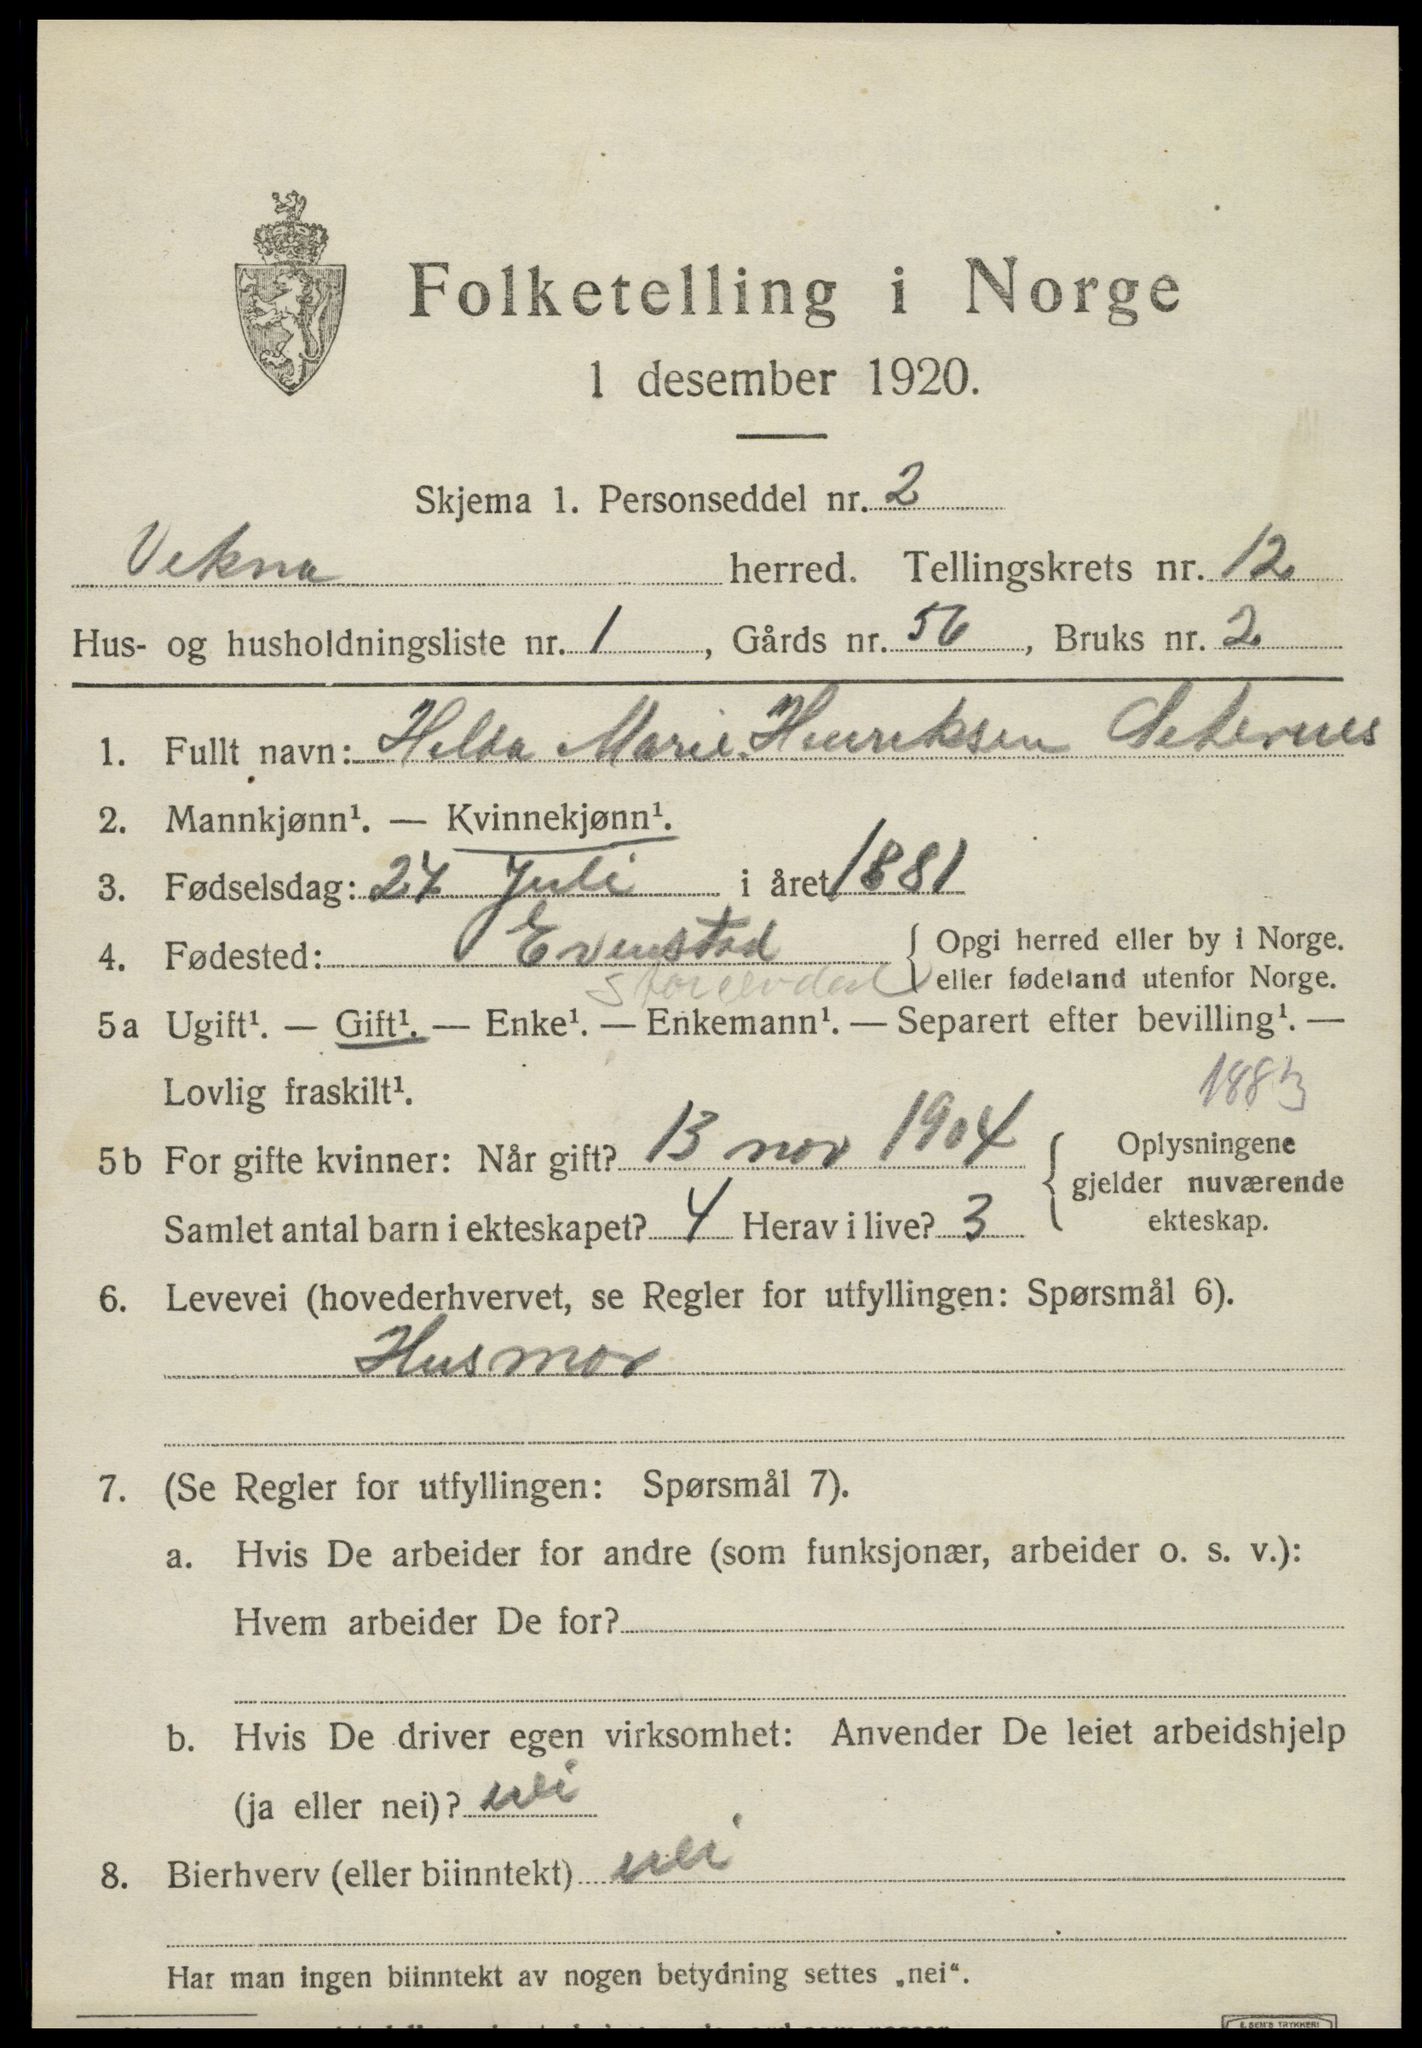 Folketelling i Norge
1 desember 1920.
Skjema 1. Personseddel nr. 2
Vikna herred. Tellingskrets nr. 12
Hus- og husholdningsliste nr. 1, Gårds nr. 56, Bruks nr. 2
1. Fullt navn: Helda Marie Henriksen Seternes
2. Mannkjønn¹. — Kvinnekjønn¹.
3. Fødselsdag: 24 Juli i året 1881
4. Fødested: Evenstad { Opgi herred eller by i Norge.
Storelvdal eller fødeland utenfor Norge.
5a Ugift¹. — Gift¹. — Enke¹. — Enkemann¹. — Separert efter bevilling¹. —
Lovlig fraskilt¹.
5b For gifte kvinner: Når gift? 13 nov 1904 { Oplysningene
gjelder nuværende
Samlet antal barn i ekteskapet? 4 Herav i live? 3 ekteskap.
6. Levevei (hovederhvervet, se Regler for utfyllingen: Spørsmål 6).
Husmor
7. (Se Regler for utfyllingen: Spørsmål 7).
a. Hvis De arbeider for andre (som funksjonær, arbeider o. s. v.):
Hvem arbeider De for?
b. Hvis De driver egen virksomhet: Anvender De leiet arbeidshjelp
(ja eller nei)? nei
8. Bierhverv (eller biinntekt) nei
Har man ingen biinntekt av nogen betydning settes „nei“.